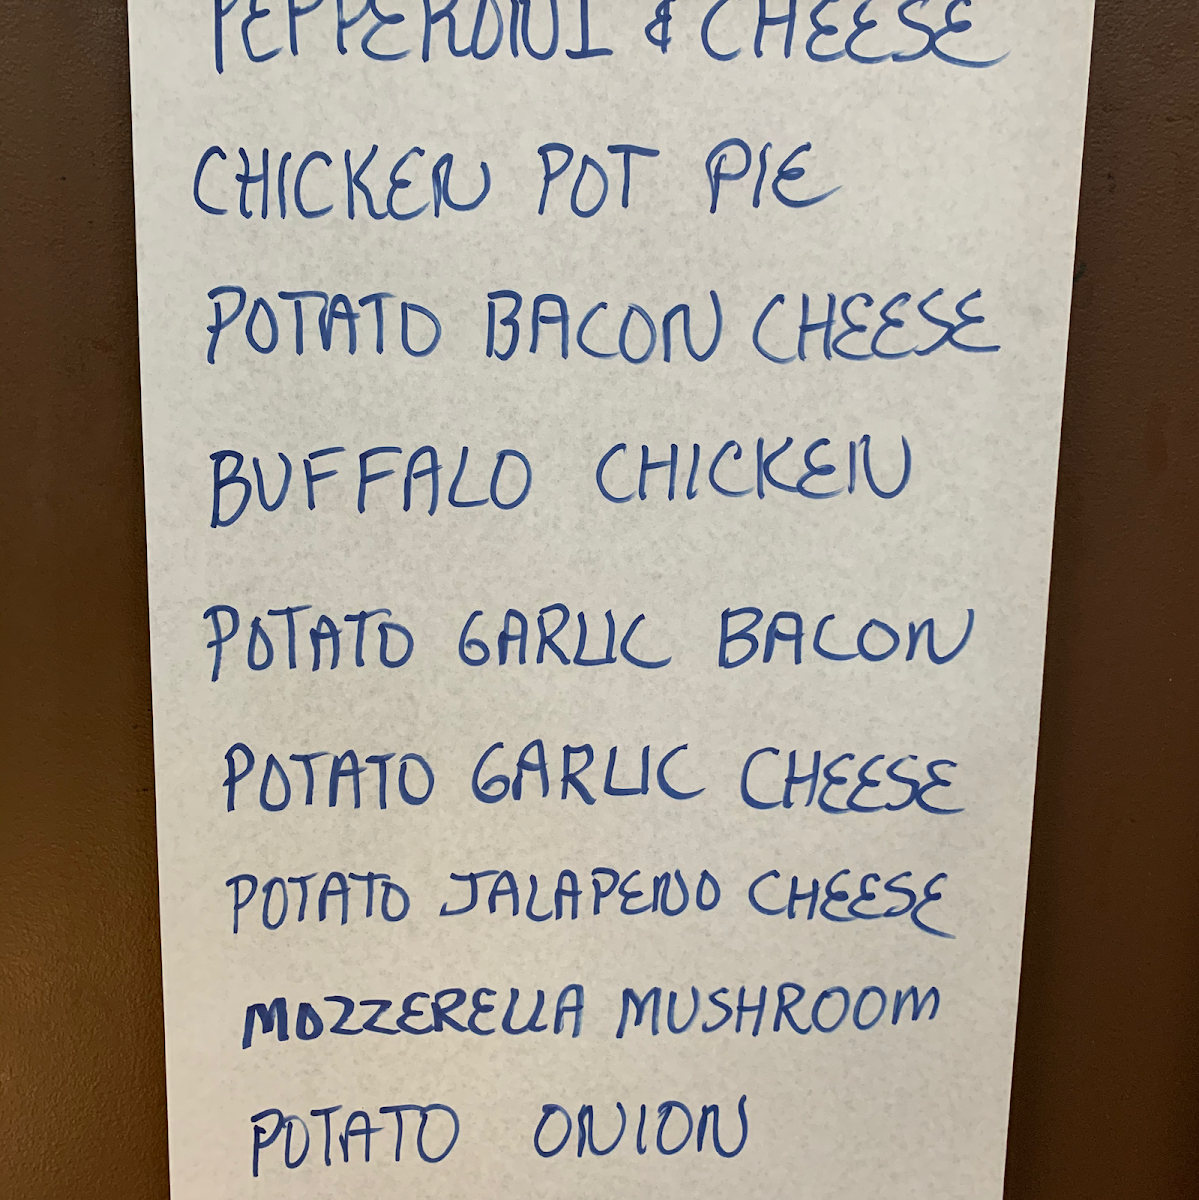 PEPPERONI & CHEESE
CHICKEN POT PIE
POTATO BACON CHEESE
BUFFALO CHICKEN
POTATO GARLIC BACON
POTATO GARLIC CHEESE
POTATO JALAPENO CHEESE
MOZZERELLA MUSHROOM
POTATO ONION